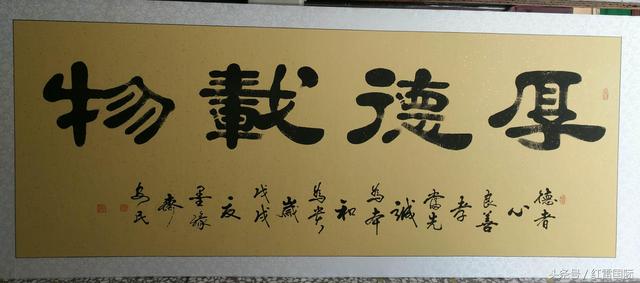 厚德載物
德者
心
良善
孝
當先
誠
為本
和
為貴
歲
戊戌
墨緣
齋
民
头条号 / 红雷国际